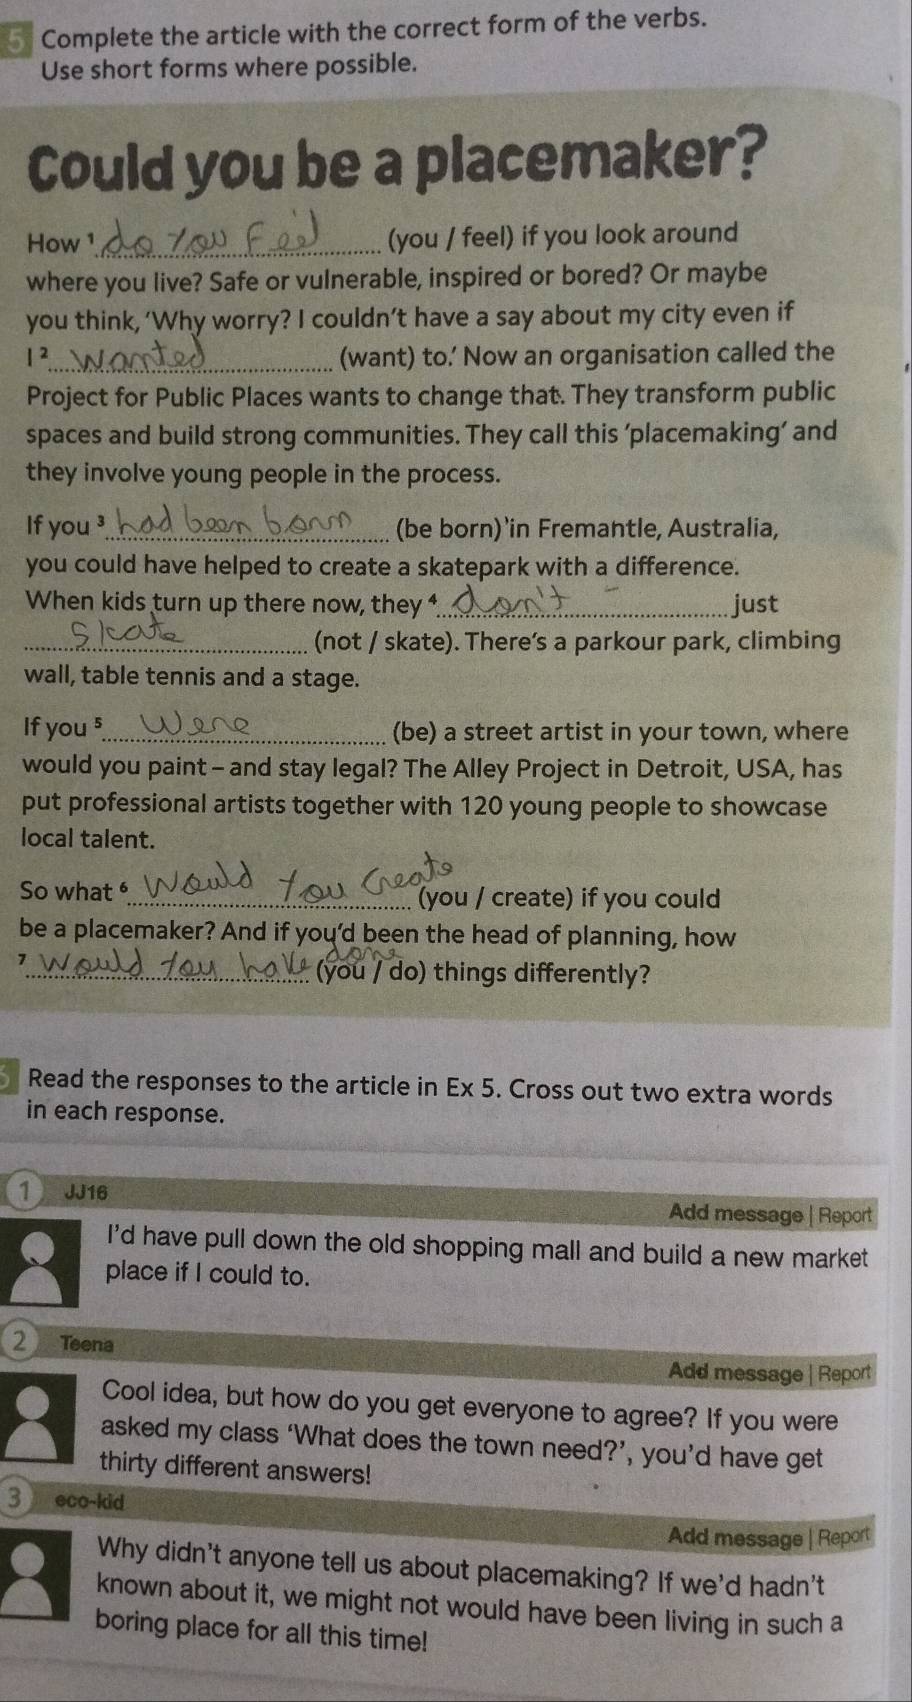 5 Complete the article with the correct form of the verbs.
Use short forms where possible.
Could you be a placemaker?
How ¹ do you Feel (you / feel) if you look around
where you live? Safe or vulnerable, inspired or bored? Or maybe
you think, ‘Why worry? I couldn’t have a say about my city even if
I ² Wanted (want) to.’ Now an organisation called the
Project for Public Places wants to change that. They transform public
spaces and build strong communities. They call this ‘placemaking’ and
they involve young people in the process.
If you ³ had been born (be born) in Fremantle, Australia,
you could have helped to create a skatepark with a difference.
When kids turn up there now, they ⁴ don't just
Skate (not / skate). There’s a parkour park, climbing
wall, table tennis and a stage.
If you ⁵ Were (be) a street artist in your town, where
would you paint – and stay legal? The Alley Project in Detroit, USA, has
put professional artists together with 120 young people to showcase
local talent.
So what ⁶ Would You Create (you / create) if you could
be a placemaker? And if you’d been the head of planning, how
⁷ Would You have done (you / do) things differently?
6 Read the responses to the article in Ex 5. Cross out two extra words
in each response.
1 JJ16
Add message | Report
I’d have pull down the old shopping mall and build a new market
place if I could to.
2 Teena
Add message | Report
Cool idea, but how do you get everyone to agree? If you were
asked my class ‘What does the town need?’, you’d have get
thirty different answers!
3 eco-kid
Add message | Report
Why didn’t anyone tell us about placemaking? If we’d hadn’t
known about it, we might not would have been living in such a
boring place for all this time!